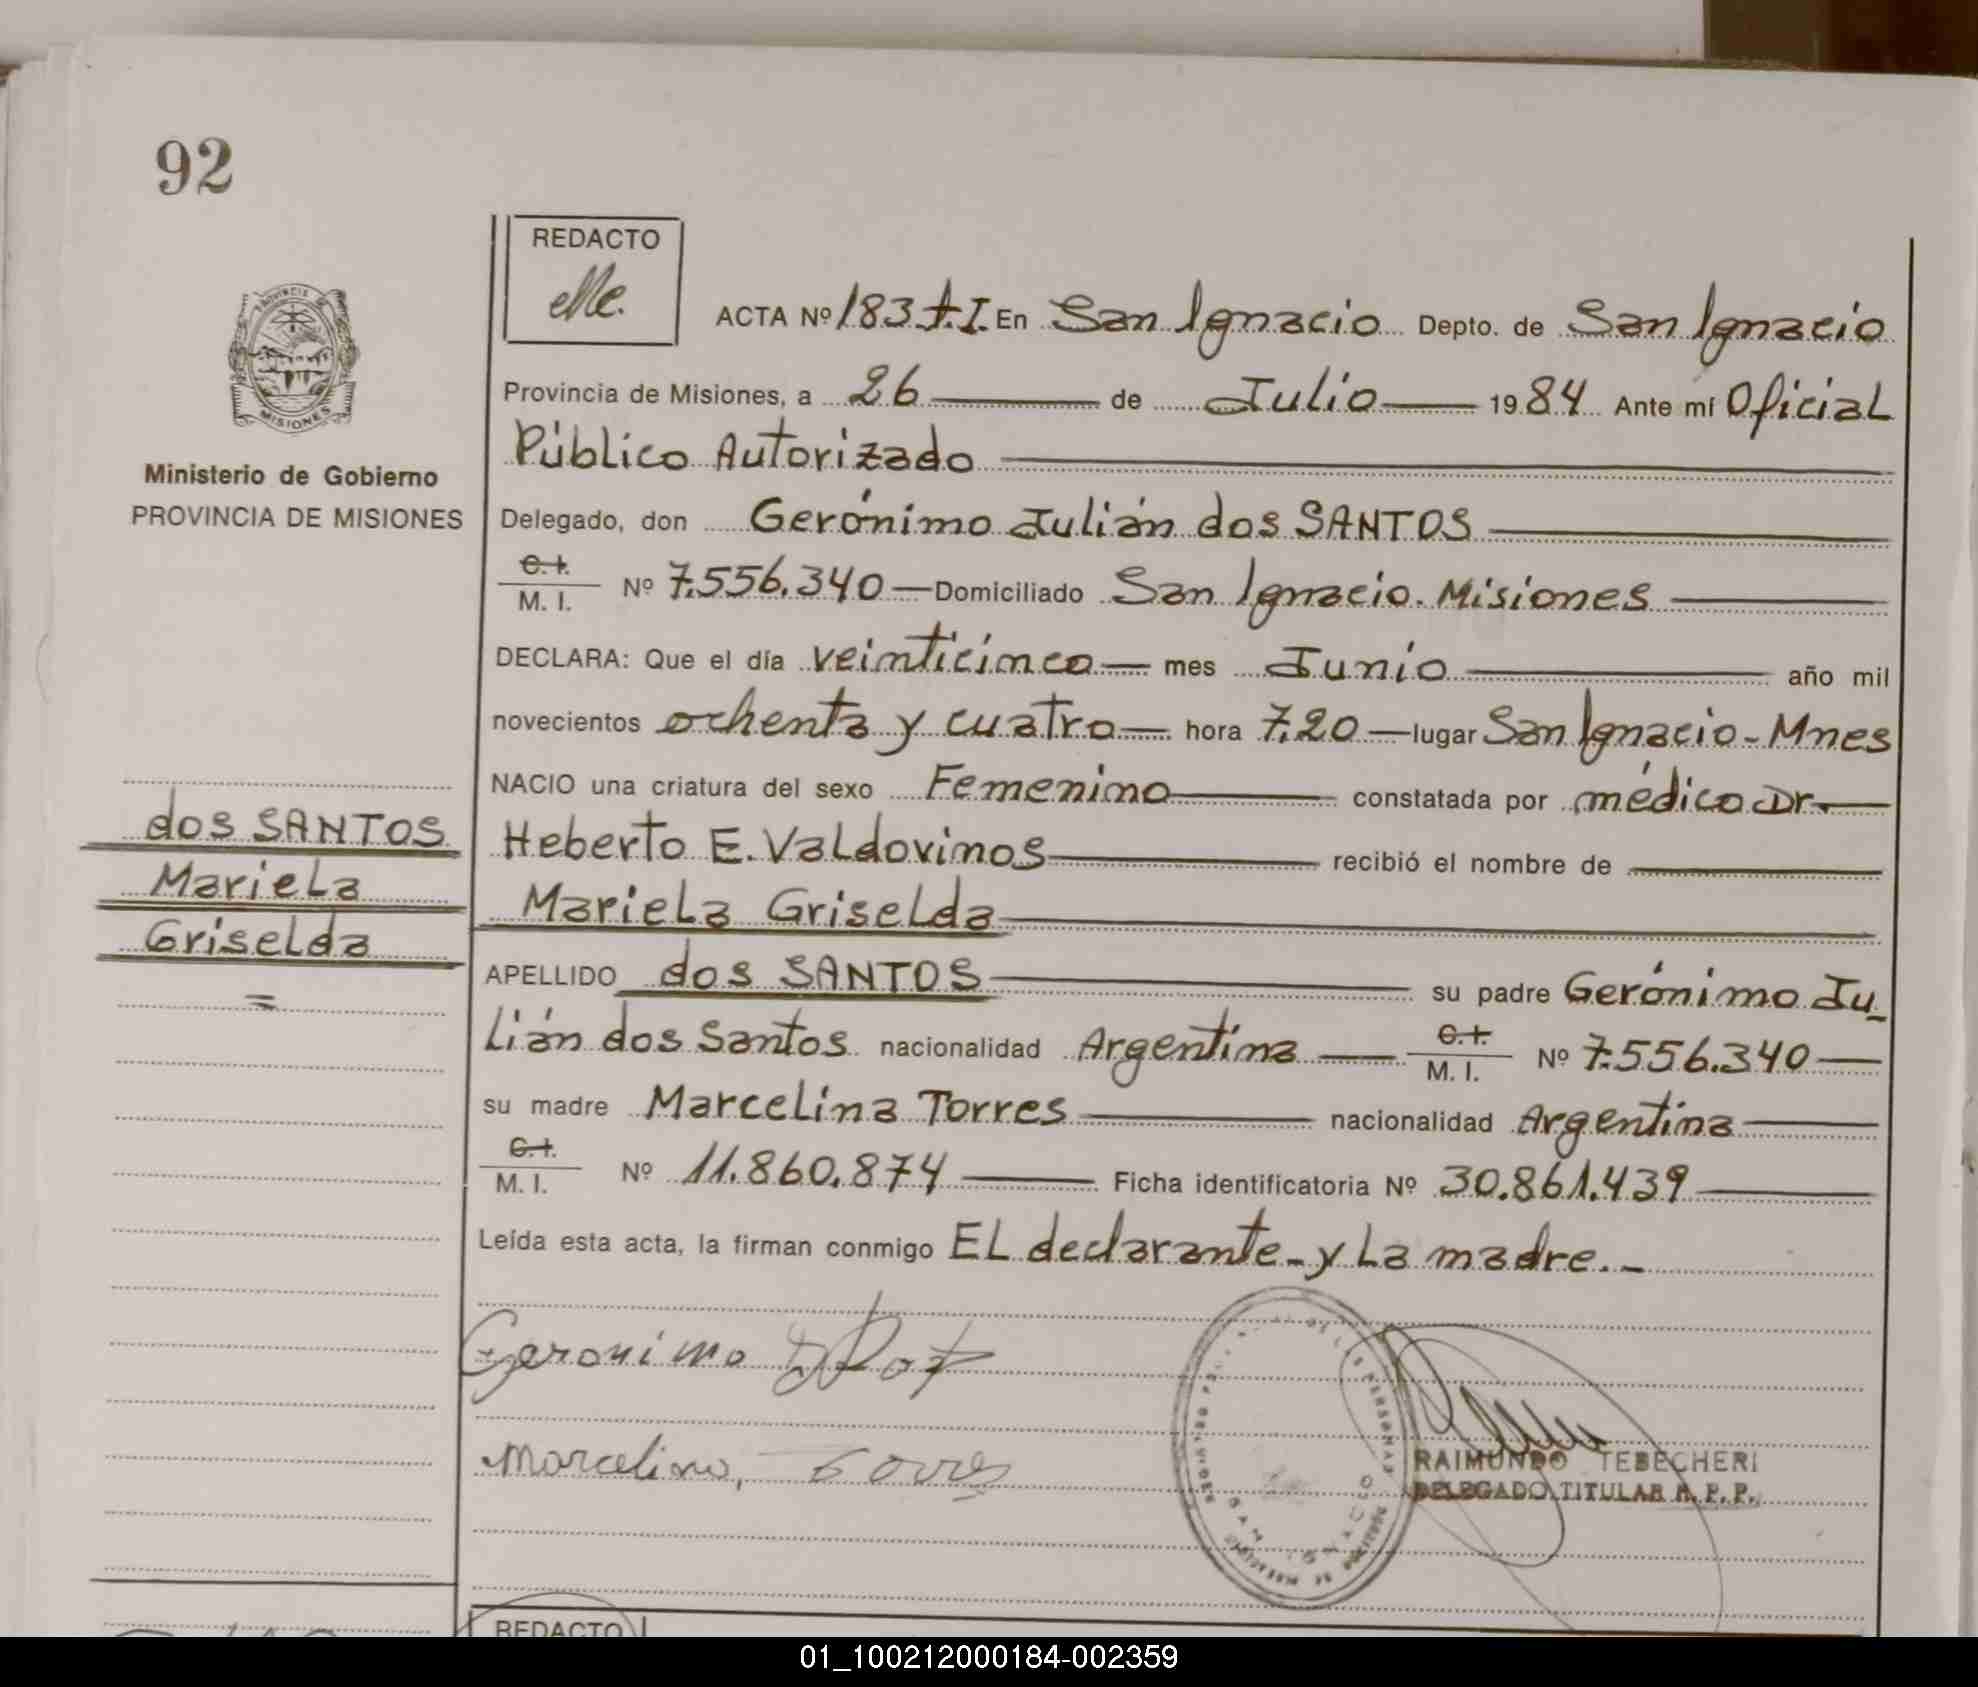 92
REDACTO
PROVINCIA DE
MISIONES
ACTA Nº 183 t.I. En San Ignacio Depto. de San Ignacio
Provincia de Misiones, a 26 de Julio 1984 Ante mí Oficial
Público Autorizado
Ministerio de Gobierno
PROVINCIA DE MISIONES
Delegado, don Gerónimo Julián dos SANTOS
C.I.
M. I. Nº 7.556.340 Domiciliado San Ignacio. Misiones
DECLARA: Que el día veinticinco mes Junio año mil
novecientos ochenta y cuatro hora 7.20 lugar San Ignacio - Mnes
NACIO una criatura del sexo Femenino constatada por médico Dr.
Heberto E. Valdovinos recibió el nombre de
Mariela Griselda
dos SANTOS
Mariela
Griselda
=
APELLIDO dos SANTOS su padre Gerónimo Ju
lián dos Santos nacionalidad Argentina C.I. M. I. Nº 7.556.340
su madre Marcelina Torres nacionalidad Argentina
C.I.
M. I. Nº 11.860.874 Ficha identificatoria Nº 30.861.439
Leída esta acta, la firman conmigo EL declarante - y La madre. -
Geronimo
Marcelina, Torres
DE LAS PERSONAS
SAN IGNACIO
MINISTERIO DE GOBIERNO
RAIMUNDO TEBECHERI
DELEGADO TITULAR R. P. P.
REDACTO
01_100212000184-002359